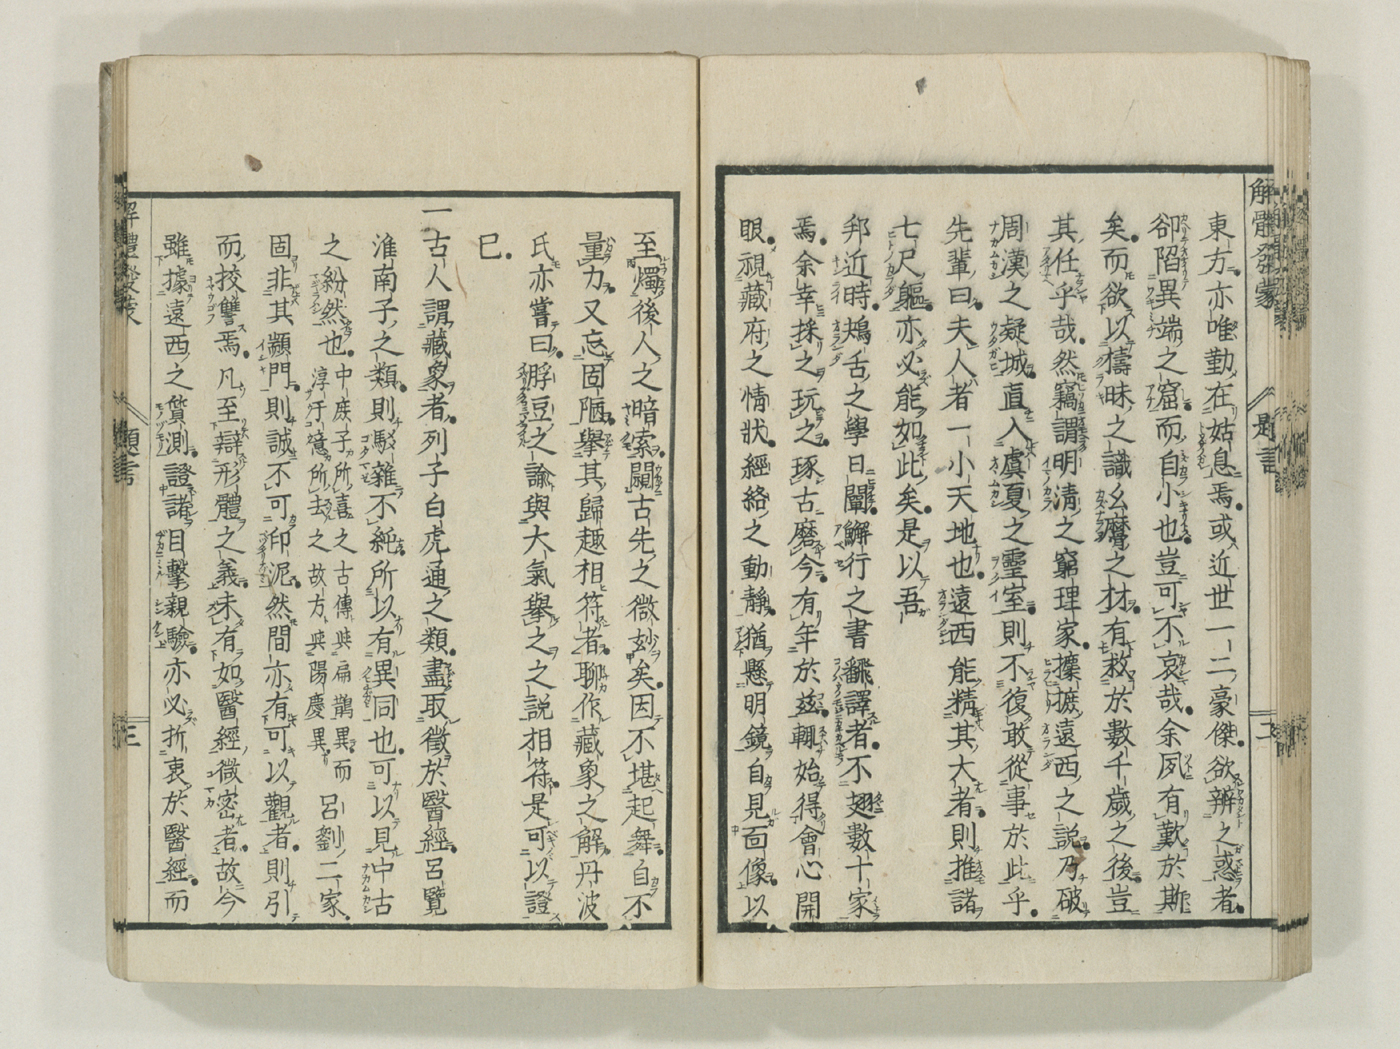 解體發蒙
題言
二
東方亦唯勤在姑息焉或近世一二豪傑欲辨之惑者
卻陷異端之窟而自小也豈可不哀哉余夙有歎於斯
矣而欲以檮昧之識幺麿之材有救於數千歲之後豈
其任乎哉然竊謂明清之窮理家攗摭遠西之說乃破
周漢之疑城直入虞夏之靈室則不復敢從事於此乎
先輩曰夫人者一小天地也遠西能精其大者則推諸
七尺軀亦必能如此矣是以吾
邦近時鴂舌之學日闡解行之書飜譯者不翅數十家
焉余幸採之玩之琢古磨今有年於茲輒始得會心開
眼視藏府之情狀經絡之動靜猶懸明鏡自見面像以
至燭後人之暗索闢古先之微妙矣因不堪起舞自不
量力又忘固陋擧其歸趣相符者聊作藏象之解丹波
氏亦嘗曰脬豆之論與大氣擧之之説相符是可以證
巳
一古人謂藏象者列子白虎通之類盡取徵於醫經呂覽
淮南子之類則駁雜不純所以有異同也可以見中古
之紛然也中庶子所喜之古傳與扁鵲異而淳于意所去之故方與陽慶異呂劉二家
固非其顓門則誠不可印泥然間亦有可以觀者則引
而挍讐焉凡至辯形體之義未有如醫經微密者故今
雖據遠西之質測證諸目擊親驗亦必折衷於醫經而
解體發蒙
題言
三